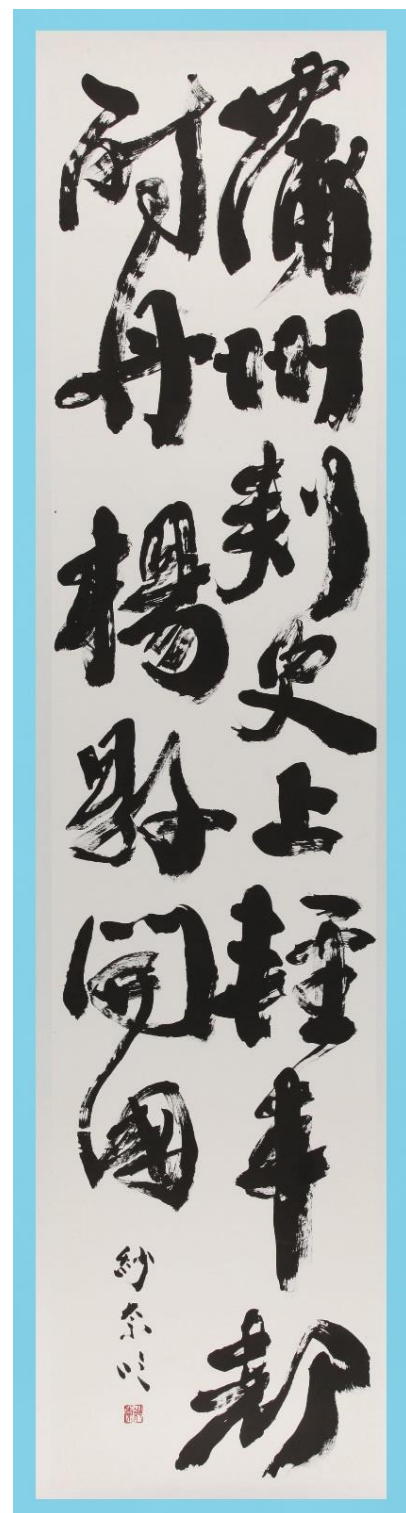 蒲州刺史上輕車都
尉丹楊縣開國
紗奈